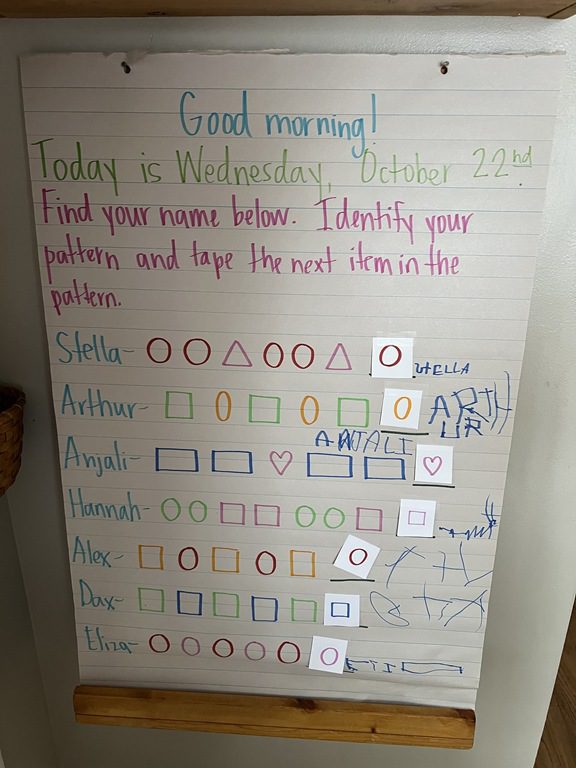 Good morning!
Today is Wednesday, October 22nd.
Find your name below. Identify your
pattern and tape the next item in the
pattern.
Stella- STELLA
Arthur- ARTH
UR
ANJALI
Anjali-
Hannah-
Alex-
Dax-
Eliza-